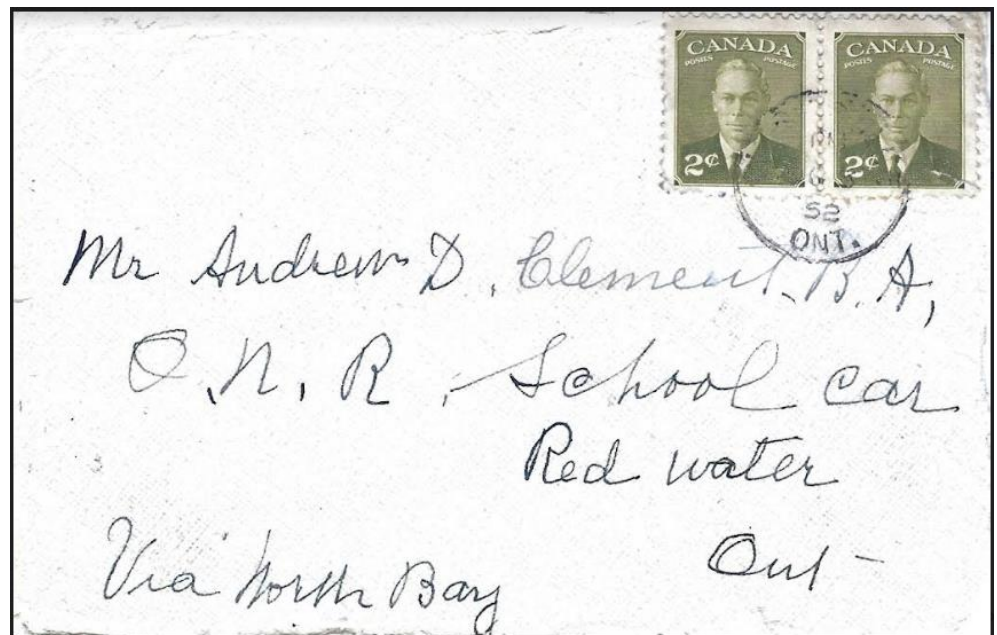 CANADA CANADA
POSTES POSTAGE POSTES POSTAGE
2¢ 2¢
52
ONT.
Mr Andrew D. Clement. B. A,
O. N. R. School car
Red water
Ont -
Via North Bay